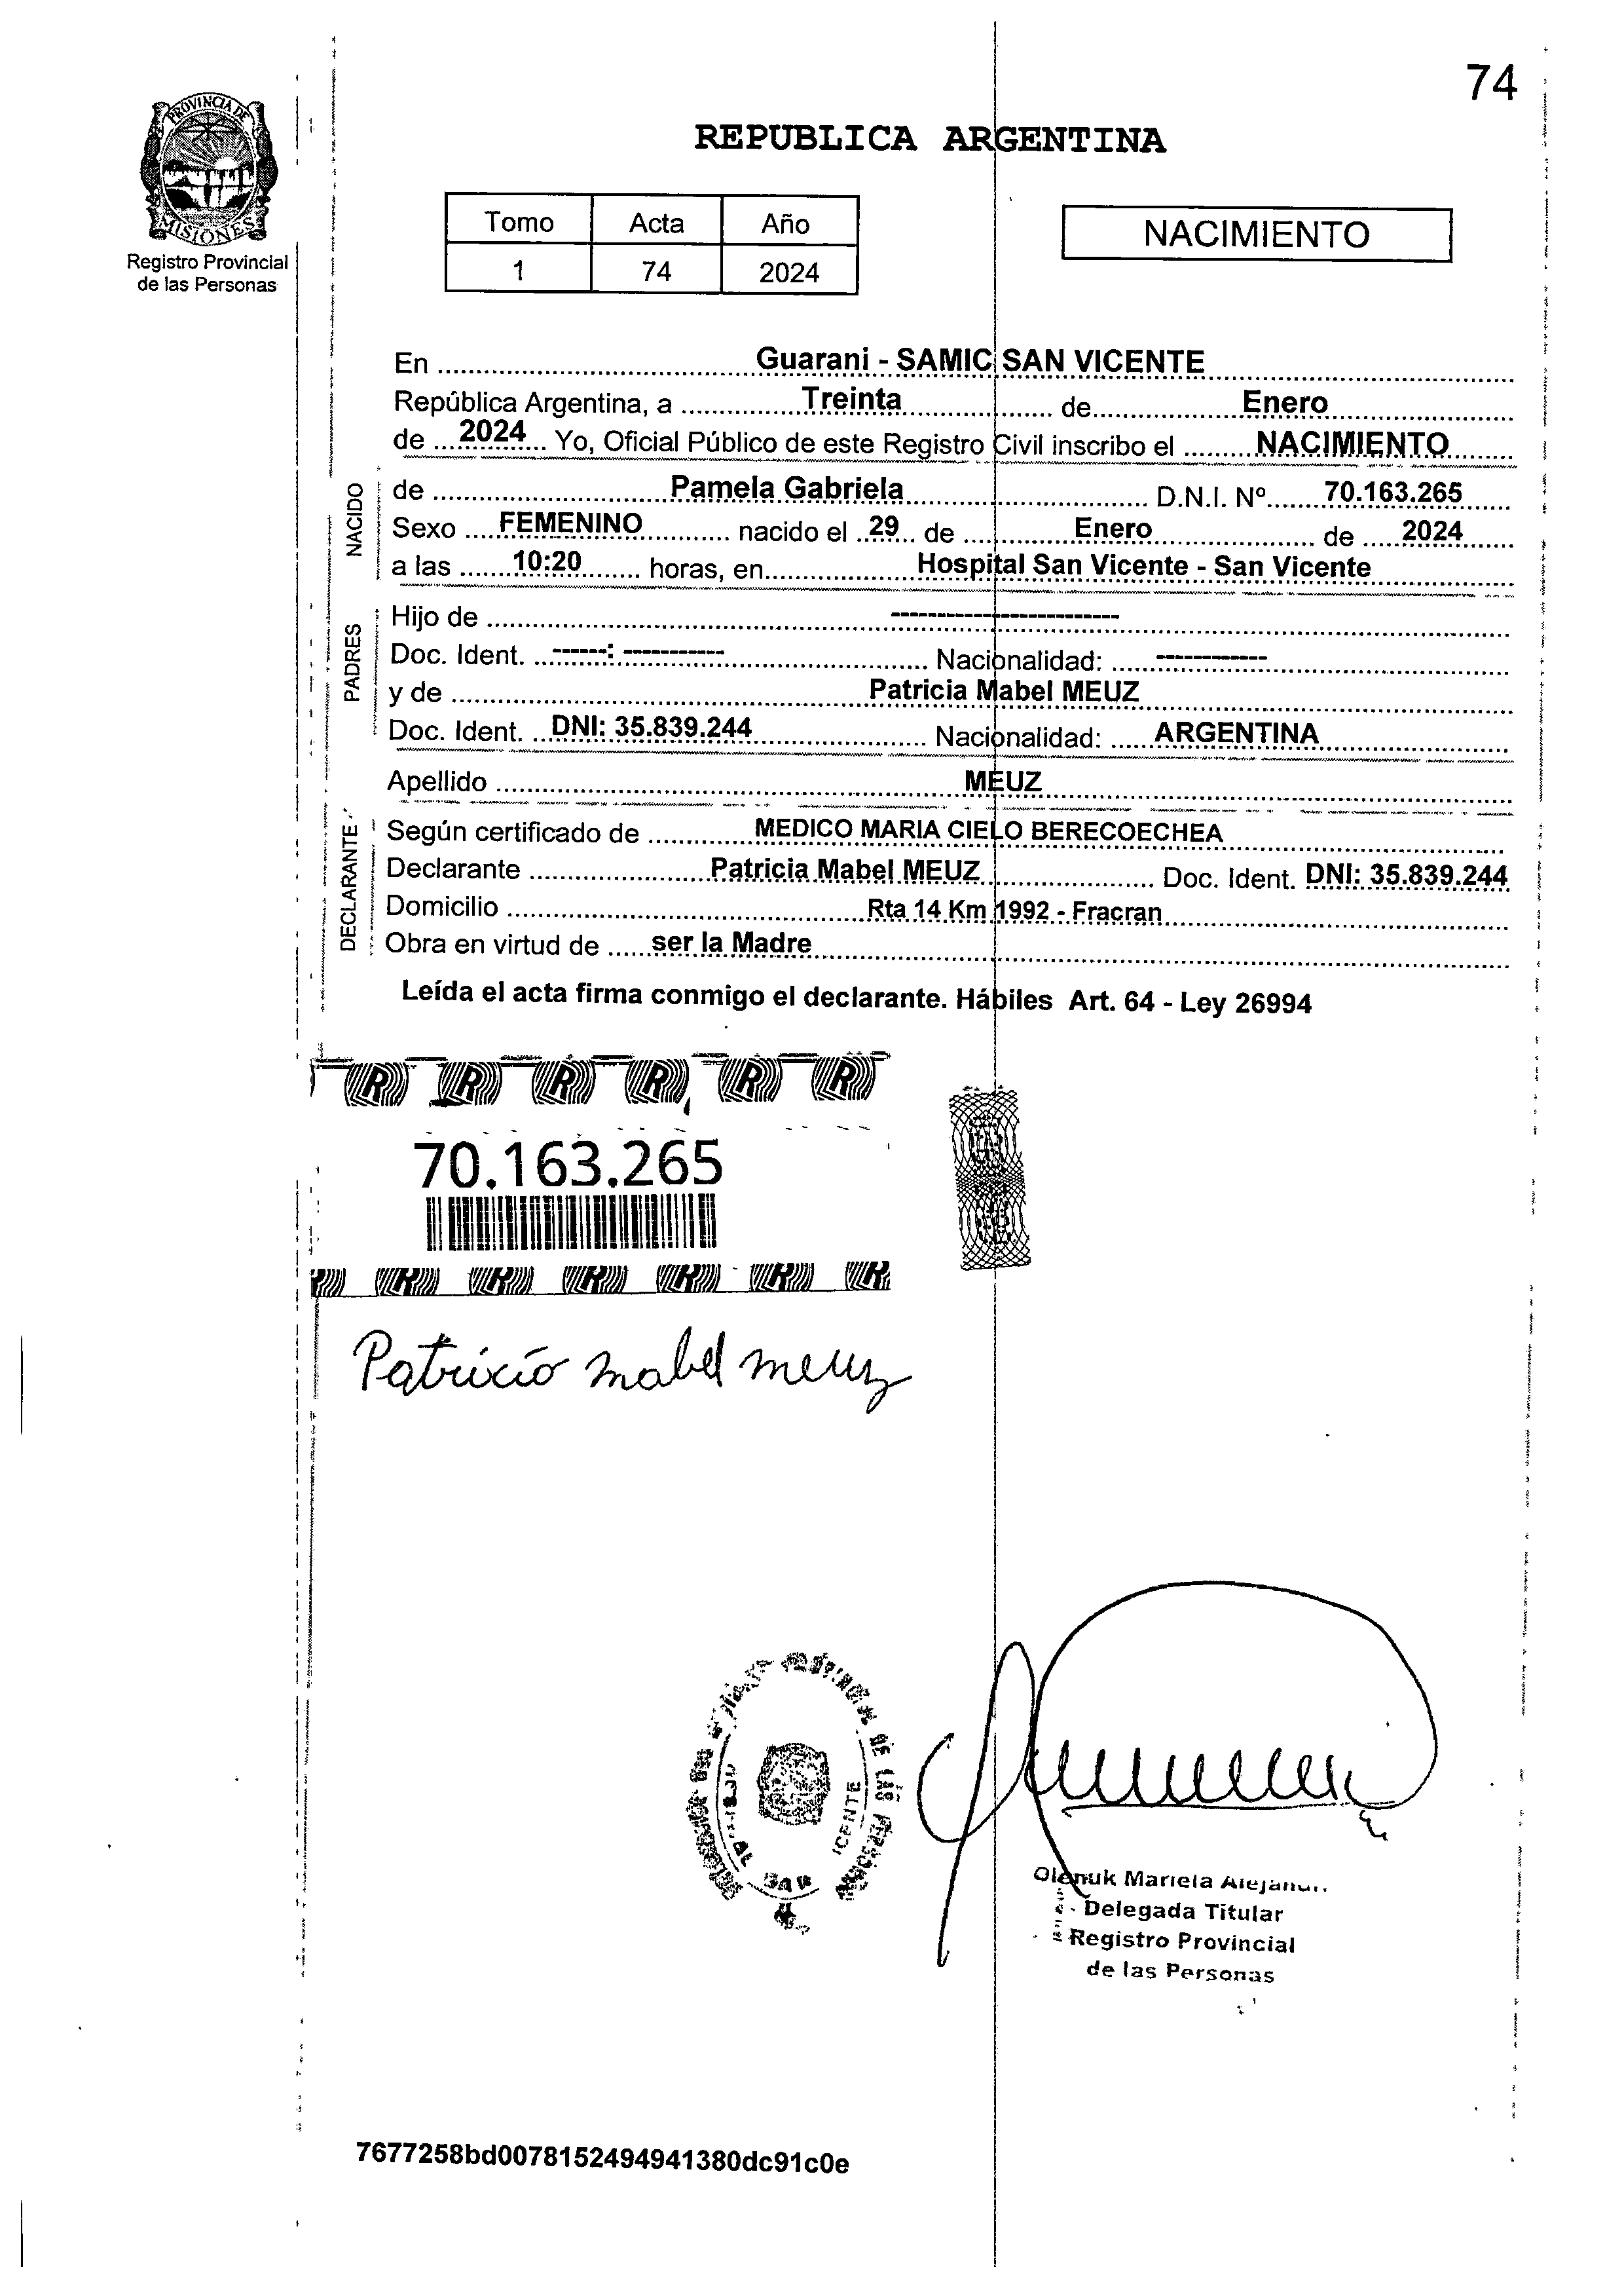 74
PROVINCIA DE
MISIONES
Registro Provincial
de las Personas
REPUBLICA ARGENTINA
Tomo Acta Año
1 74 2024
NACIMIENTO
En Guarani - SAMIC SAN VICENTE
República Argentina, a Treinta de Enero
de 2024 Yo, Oficial Público de este Registro Civil inscribo el NACIMIENTO
NACIDO
de Pamela Gabriela D.N.I. Nº 70.163.265
Sexo FEMENINO nacido el 29 de Enero de 2024
a las 10:20 horas, en Hospital San Vicente - San Vicente
PADRES
Hijo de --------------------
Doc. Ident. ------: ----------- Nacionalidad: ------------
y de Patricia Mabel MEUZ
Doc. Ident. DNI: 35.839.244 Nacionalidad: ARGENTINA
Apellido MEUZ
DECLARANTE
Según certificado de MEDICO MARIA CIELO BERECOECHEA
Declarante Patricia Mabel MEUZ Doc. Ident. DNI: 35.839.244
Domicilio Rta 14 Km 1992 - Fracran
Obra en virtud de ser la Madre
Leída el acta firma conmigo el declarante. Hábiles Art. 64 - Ley 26994
R R R R R R
70.163.265
R R R R R R
Patricia mabel meuz
DE LAS
ICENTE
SAN
Olenuk Mariela
Delegada Titular
Registro Provincial
de las Personas
7677258bd0078152494941380dc91c0e